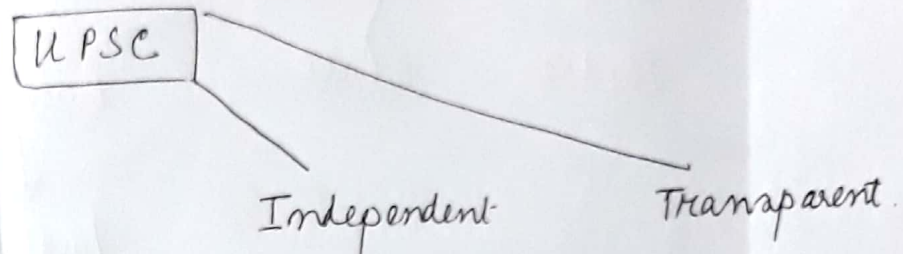 UPSC
Independent
Transparent.